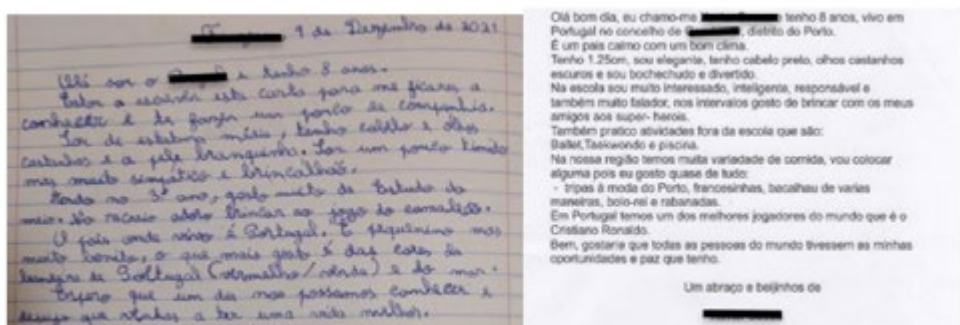 9 de Dezembro de 2021
Olá sou o e tenho 8 anos.
Estou a escrever esta carta para me ficares a
conhecer e te fazer um pouco de companhia.
Sou de estatura média, tenho cabelo e olhos
castanhos e a pele branquinha. Sou um pouco tímido
mas muito simpático e brincalhão.
Ando no 3º ano, gosto muito de Estudo do
meio. No recreio adoro brincar ao jogo do camaleão.
O país onde vivo é Portugal. É pequenino mas
muito bonito, o que mais gosto é das cores da
bandeira de Portugal (vermelho/verde) e do mar.
Espero que um dia nos possamos conhecer e
desejo que venhas a ter uma vida melhor.
Olá bom dia, eu chamo-me tenho 8 anos, vivo em
Portugal no concelho de , distrito do Porto.
É um país calmo com um bom clima.
Tenho 1.25cm, sou elegante, tenho cabelo preto, olhos castanhos
escuros e sou bochechudo e divertido.
Na escola sou muito interessado, inteligente, responsável e
também muito falador, nos intervalos gosto de brincar com os meus
amigos aos super- herois.
Também pratico atividades fora da escola que são:
Ballet,Taekwondo e piscina.
Na nossa região temos muita variedade de comida, vou colocar
alguma pois eu gosto quase de tudo:
- tripas à moda do Porto, francesinhas, bacalhau de varias
maneiras, bolo-rei e rabanadas.
Em Portugal temos um dos melhores jogadores do mundo que é o
Cristiano Ronaldo.
Bem, gostaria que todas as pessoas do mundo tivessem as minhas
oportunidades e paz que tenho.
Um abraço e beijinhos de